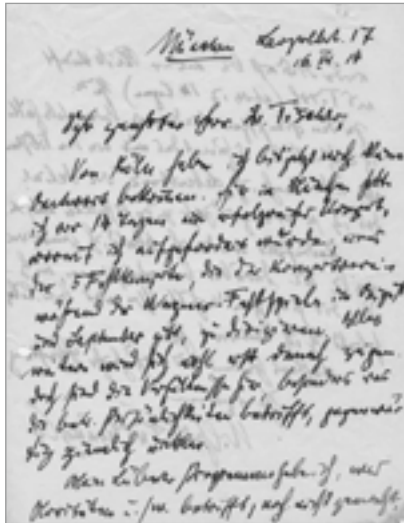 München Leopoldstr. 17
16. IV. 14
Sehr geehrter Herr Dr. Tischer,
Von Köln habe ich bis jetzt noch keine
Antwort bekommen. Hier in München hatte
ich vor 14 Tagen ein erfolgreiches Konzert,
worauf ich aufgefordert wurde, eines
der 5 Festkonzerte, die der Konzertverein
während der Wagner-Festspiele im August
und September gibt, zu dirigieren. Alles
weitere wird sich wohl erst danach zeigen.
doch sind die Verhältnisse hier, besonders was
die Persönlichkeiten betrifft, gegenwär-
tig ziemlich
Programm habe ich, was
Novitäten u.s.w. betrifft, noch nicht gemacht.